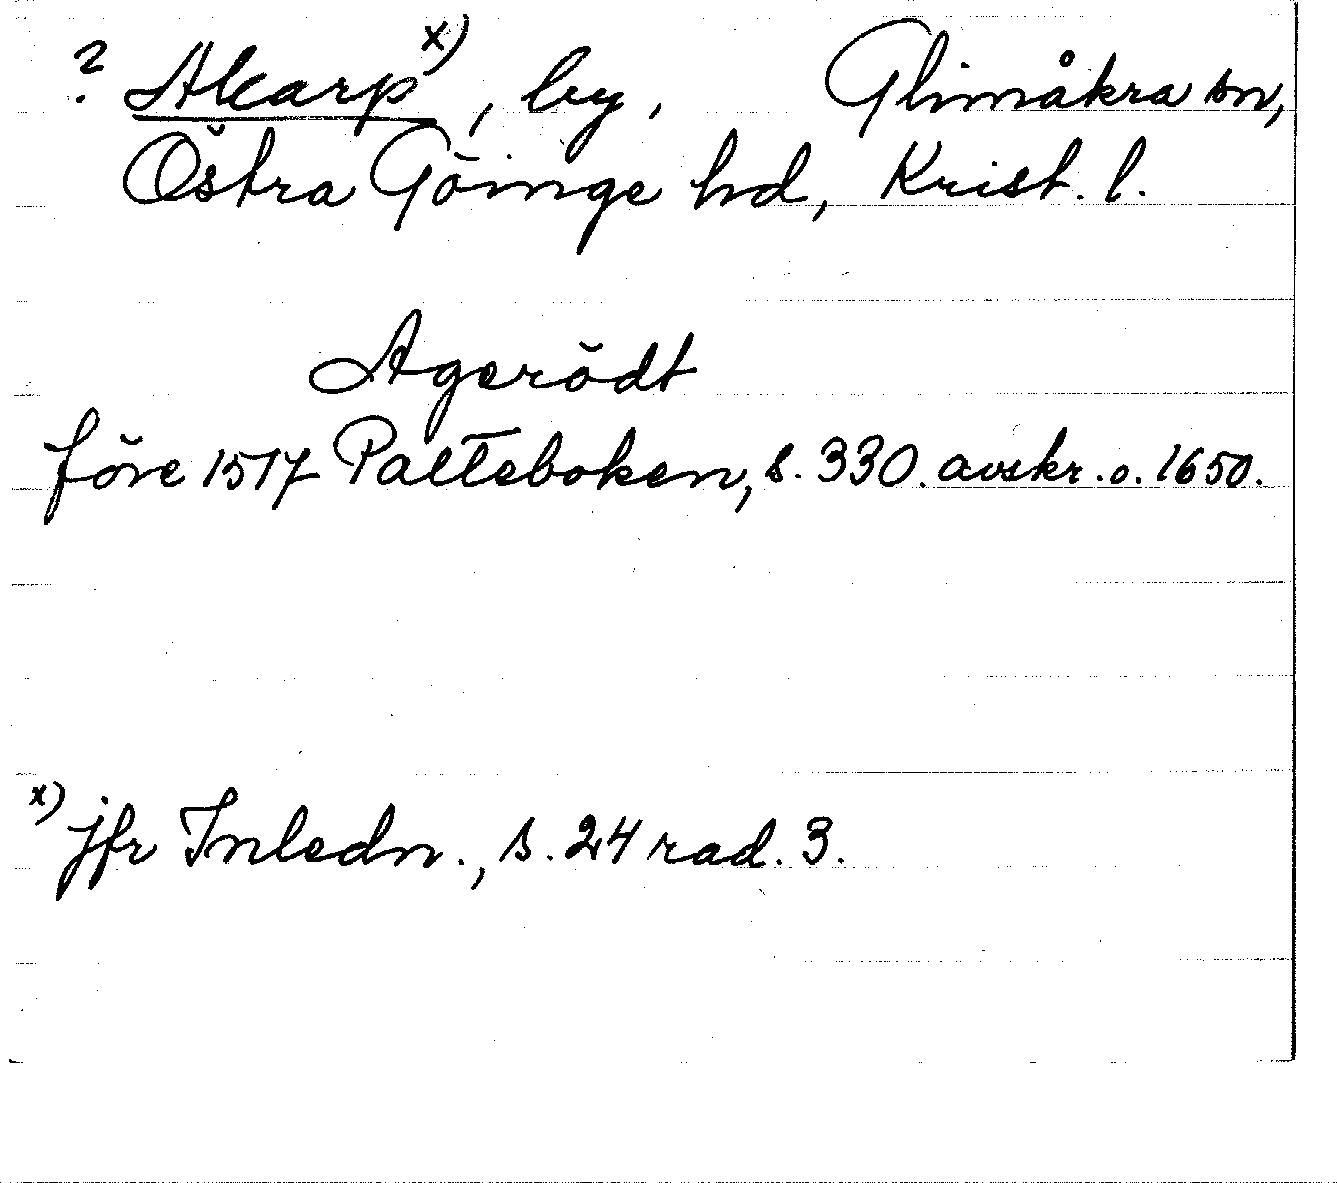 ? Alcarp x), by, Glimåkra sn,
Östra Göinge hd, Krist. l.
Agerödt
före 1517 Palteboken, s. 330. avskr. o. 1650.
x) jfr Inledn., s. 24 rad. 3.